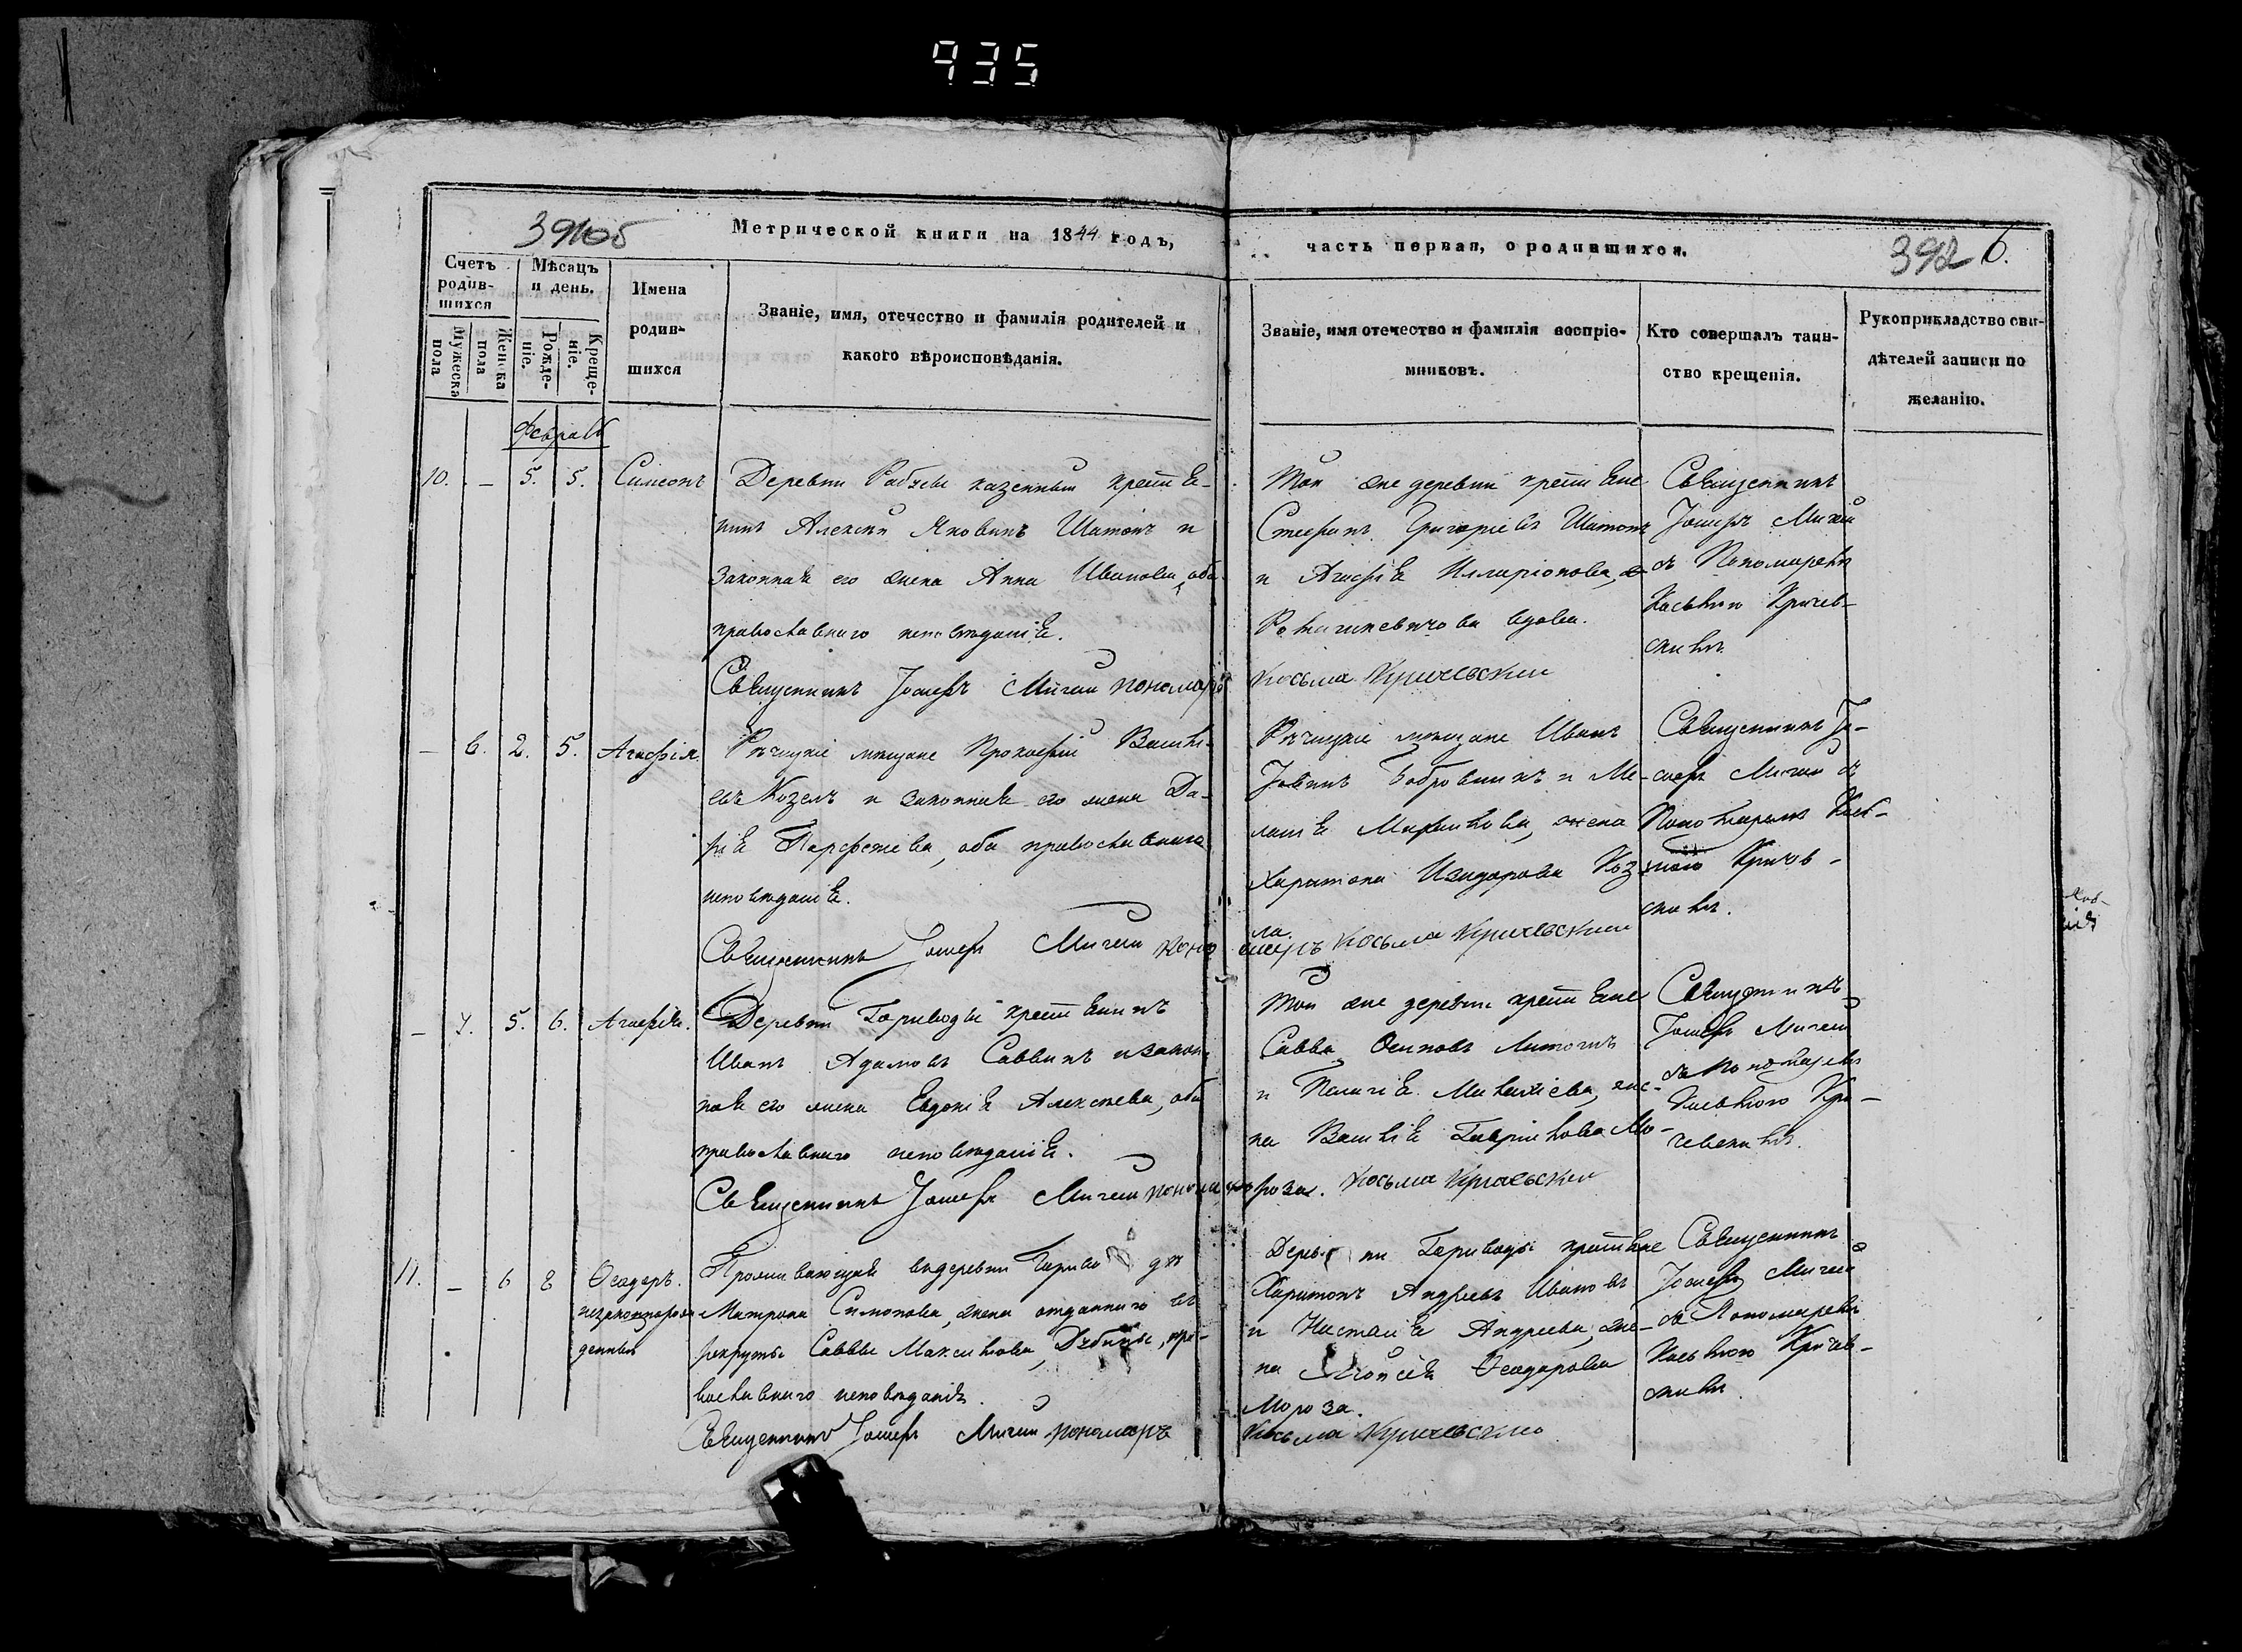 935
391об
Метрической книги на 1844 годъ,
часть первая, о родившихся.
392 6.
Счетъ родив-шихся
Мужеска пола
Женска пола
Мѣсацъ и день.
Рожде-ніе.
Креще-ніе.
Имена
родив-
шихся
Званіе, имя, отечество и фамилія родителей и
какого вѣроисповѣданія.
Званіе, имя отечество и фамилія воспріе-
мниковъ.
Кто совершалъ таин-
ство крещенія.
Рукоприкладство сви-
дѣтелей записи по
желанію.
Февраль
10. – 5. 5. Симеонъ
Деревни казенный крестья-
нинъ Алексѣй Яковинъ Шатонъ и
законная его жена Анна Иванова, оба
православнаго исповѣданія.
Священникъ Іосифъ Мигай пономарь
Той же деревни крестьяне
Стефанъ Григоріевъ Шатонъ
и Агафія Илларіонова,
вдова.
Косьма Кричевскій
Священникъ
Іосифъ Мигай
съ Пономаремъ
Косьмою Кричев-
скимъ
– 6. 2. 5. Агафія
Рѣчицкіе мѣщане Прокофій Василь-
евъ Козелъ и законная его жена Да-
рія Парфеніева, оба православнаго
исповѣданія.
Священникъ Іосифъ Мигай поно
Рѣчицкіе мѣщане Иванъ
Бобровникъ и Ме-
ланія Маркова, жена
Харитона Изидорова Коз
ла.
марь Косьма Кричевскій
Священникъ Іо-
сифъ Мигай съ
Пономаремъ Кось-
мою Кричев-
скимъ.
– 7. 5. 6. Агафія.
Деревни Гориводы крестьянинъ
Иванъ Адамовъ Саввинъ и закон
ная его жена Евдокія Алексѣева, оба
православнаго исповѣданія.
Священникъ Іосифъ Мигай пономарь
Той же деревни крестьяне
Савва Осиповъ
и Пелагія Михайлова, же-
на Василія Гаврилова Мо-
роза. Косьма Кричевскій
Священникъ
Іосифъ Мигай
съ Пономаремъ
Косьмою Кри-
чевскимъ.
11. – 6 8 Ѳеодоръ.
незаконнорож
денный
Проживающая въ деревни Гориводы
Матрона Симонова, жена отданнаго въ
рекруты Саввы Максимова, пра-
вославнаго исповѣданія.
Священникъ Іосифъ Мигай пономарь
Деревни Гориводы крестьяне
Харитонъ Андреевъ Ивановъ
и Настасія Андреева, же-
на Моисея Ѳеодорова
Мороза.
Косьма Кричевскій
Священникъ
Іосифъ Мигай
съ Пономаремъ
Косьмою Кричев-
скимъ.